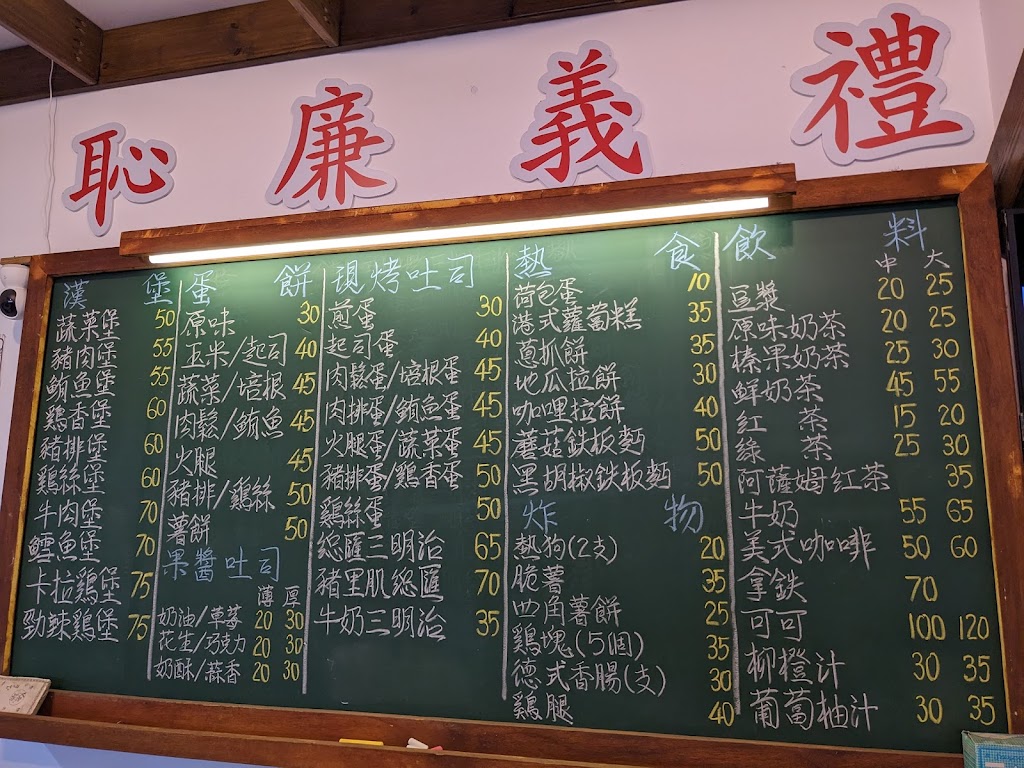 恥 廉 義 禮
漢 堡
蔬菜堡 50
豬肉堡 55
鮪魚堡 55
鷄香堡 60
豬排堡 60
鷄絲堡 60
牛肉堡 70
鱈魚堡 70
卡拉鷄堡 75
勁辣鷄堡 75
蛋 餅
原味 30
玉米/起司 40
蔬菜/培根 45
肉鬆/鮪魚 45
火腿 45
豬排/鷄絲 50
薯餅 50
果醬吐司
薄 厚
奶油/草莓 20 30
花生/巧克力 20 30
奶酥/蒜香 20 30
現烤吐司
煎蛋 30
起司蛋 40
肉鬆蛋/培根蛋 45
肉排蛋/鮪魚蛋 45
火腿蛋/蔬菜蛋 45
豬排蛋/鷄香蛋 50
鷄絲蛋 50
總匯三明治 65
豬里肌總匯 70
牛奶三明治 35
熱 食
荷包蛋 10
港式蘿蔔糕 35
蔥抓餅 35
地瓜拉餅 30
咖哩拉餅 40
蘑菇鉄板麵 50
黑胡椒鉄板麵 50
炸 物
熱狗(2支) 20
脆薯 35
四角薯餅 25
鷄塊(5個) 35
德式香腸(支) 30
鷄腿 40
飲 料
中 大
豆漿 20 25
原味奶茶 20 25
榛果奶茶 25 30
鮮奶茶 45 55
紅 茶 15 20
綠 茶 25 30
阿薩姆紅茶 35
牛奶 55 65
美式咖啡 50 60
拿鉄 70
可可 100 120
柳橙汁 30 35
葡萄柚汁 30 35